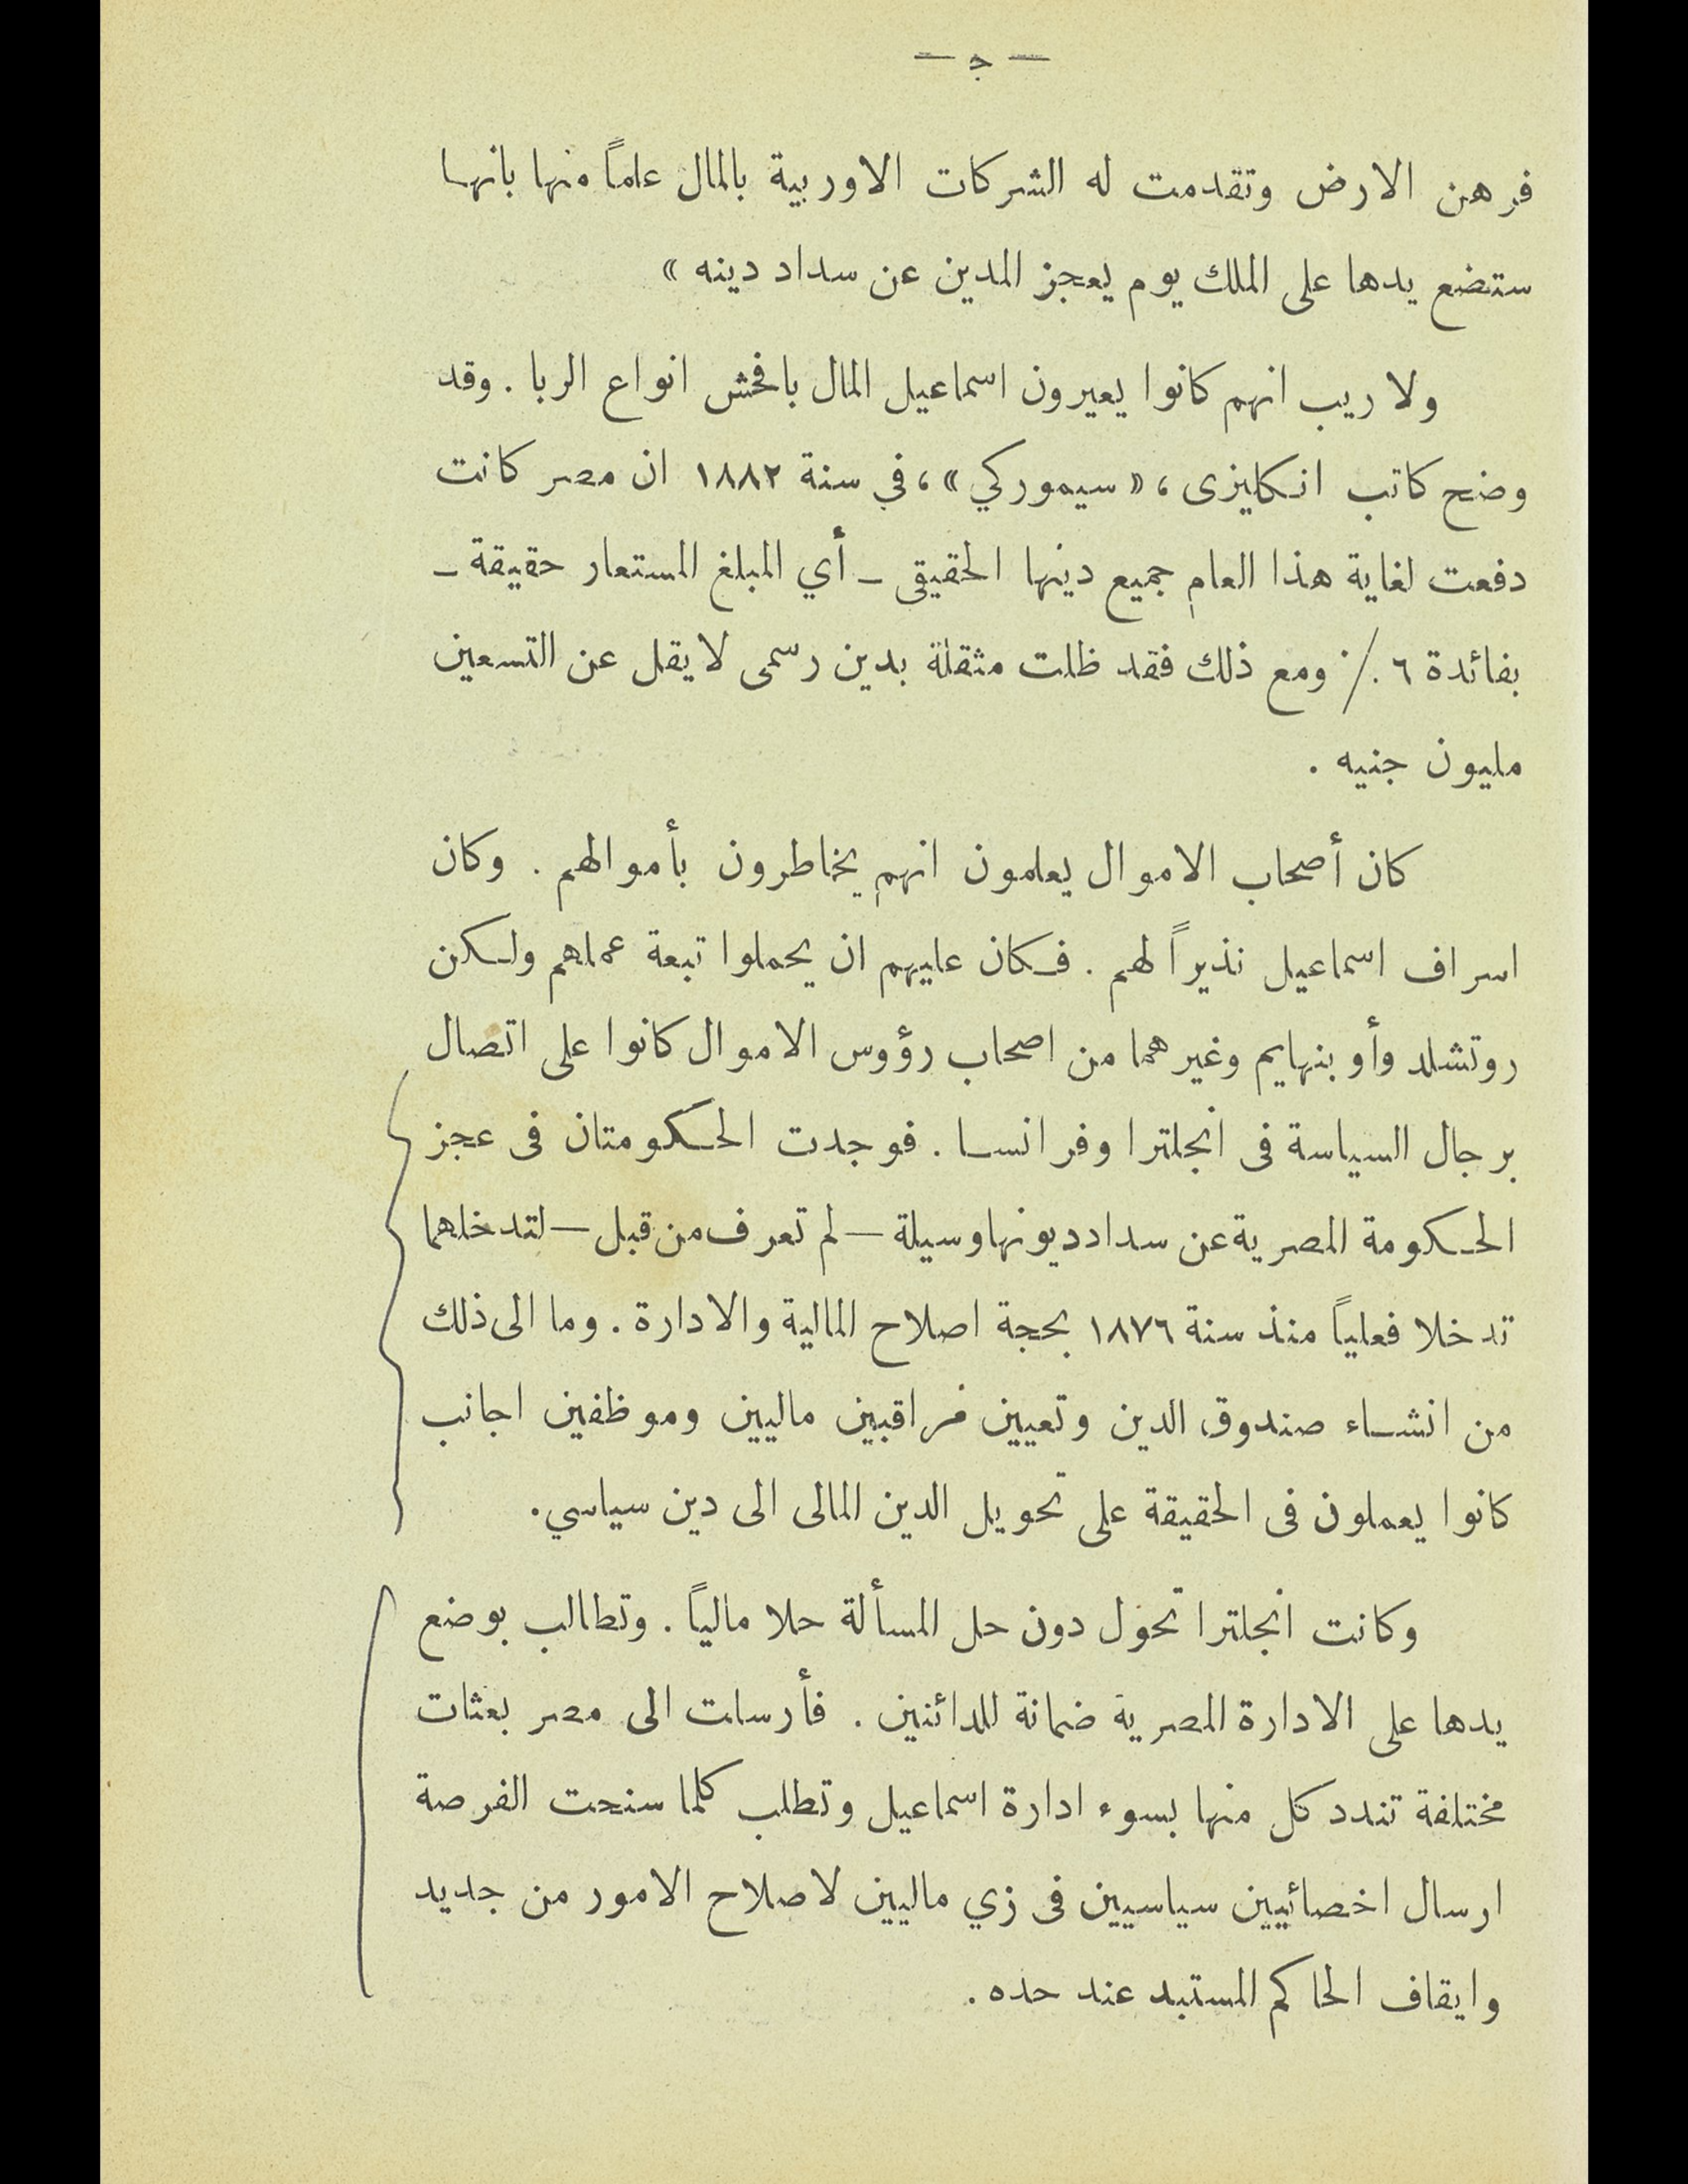 — ج —
فرهن الارض وتقدمت له الشركات الاوربية بالمال علماً منها بانها
ستضع يدها على الملك يوم يعجز المدين عن سداد دينه »
ولا ريب انهم كانوا يعيرون اسماعيل المال بافحش انواع الربا . وقد
وضح كاتب انكليزى ، « سيموركي » ، في سنة ١٨٨٢ ان مصر كانت
دفعت لغاية هذا العام جميع دينها الحقيقى – أي المبلغ المستعار حقيقة –
بفائدة ٦ ./· ومع ذلك فقد ظلت مثقلة بدين رسمى لا يقل عن التسعين
مليون جنيه .
كان أصحاب الاموال يعلمون انهم يخاطرون بأموالهم . وكان
اسراف اسماعيل نذيراً لهم . فكان عليهم ان يحملوا تبعة عملهم ولكن
روتشلد وأوبنهايم وغيرهما من اصحاب رؤوس الاموال كانوا على اتصال
برجال السياسة فى انجلترا وفرانسا . فوجدت الحكومتان فى عجز
الحكومة المصرية عن سداد ديونها وسيلة — لم تعرف من قبل — لتدخلهما
تدخلا فعلياً منذ سنة ١٨٧٦ بحجة اصلاح المالية والادارة . وما الى ذلك
من انشاء صندوق الدين وتعيين مراقبين ماليين وموظفين اجانب
كانوا يعملون فى الحقيقة على تحويل الدين المالى الى دين سياسي .
وكانت انجلترا تحول دون حل المسألة حلا مالياً . وتطالب بوضع
يدها على الادارة المصرية ضمانة للدائنين . فأرسلت الى مصر بعثات
مختلفة تندد كل منها بسوء ادارة اسماعيل وتطلب كلما سنحت الفرصة
ارسال اخصائيين سياسيين فى زي ماليين لاصلاح الامور من جديد
وايقاف الحاكم المستبد عند حده .